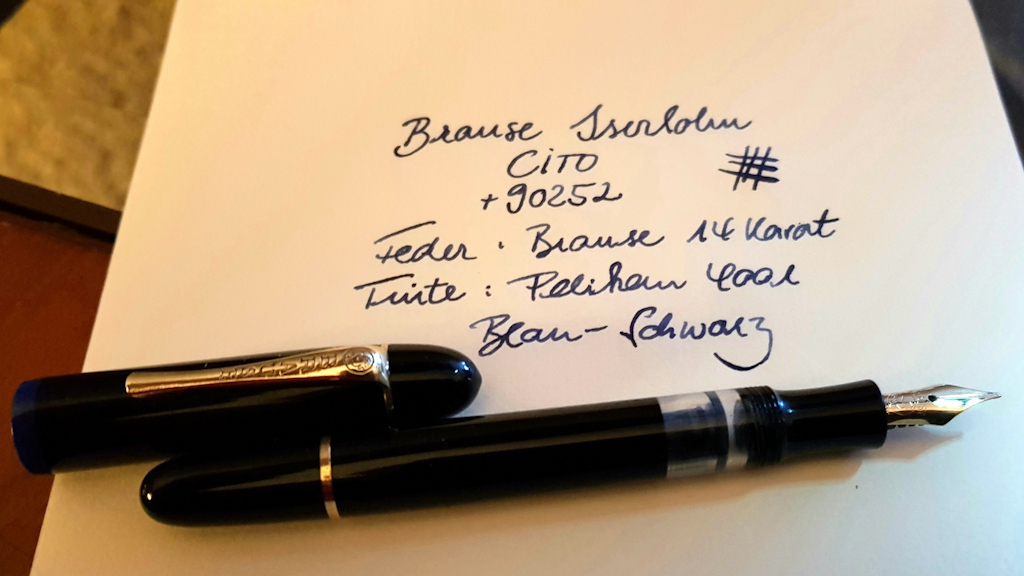 Brause Iserlohn
CiTO
+90252
#
Feder : Brause 14 Karat
Tinte : Pelikan 4001
Blau-Schwarz